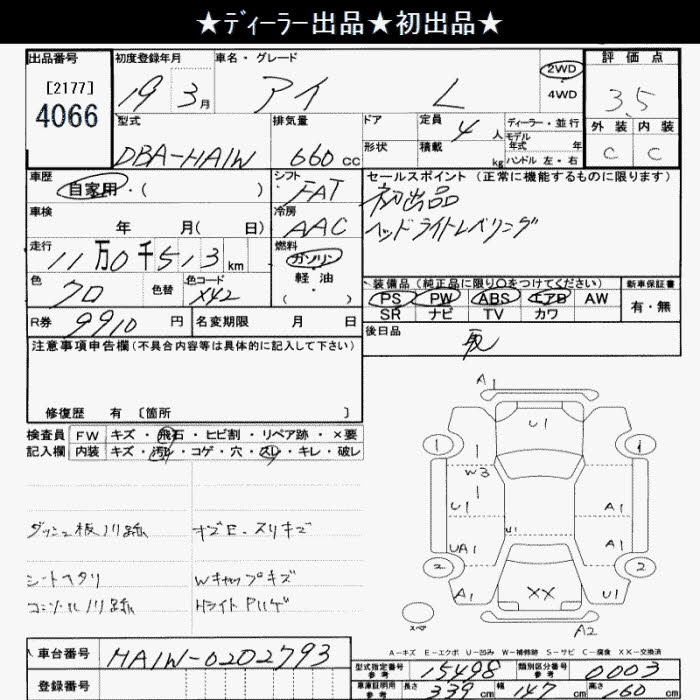 ★ディーラー出品★初出品★
出品番号 初度登録年月 車名・グレード 評価点
[2177]
4066
19 3月 アイ L 2WD 4WD 3.5
型式 排気量 ドア 定員 4人 ディーラー・並行 外装 内装
DBA-HA1W 660cc 形状 積載 kg モデル年式 年 ハンドル 左・右 C C
車歴 シフト セールスポイント(正常に機能するものに限ります)
自家用・( ) FAT 初出品
車検 冷房 ヘッドライトレベリング
年 月( 日) AAC
走行 燃料
11万0千513km ガソリン
色 色替 色コード 軽油 装備品(純正品に限り〇をつけてください) 新車保証書
クロ X42 ( ) PS PW ABS エアB AW 有・無
SR ナビ TV カワ
R券 9910円 名変期限 月 日 後日品
注意事項申告欄(不具合内容等は具体的に記入して下さい)
修復歴 有 〔箇所 〕
検査員 FW キズ・飛石・ヒビ割・リペア跡・×要
記入欄 内装 キズ・汚レ・コゲ・穴・スレ・キレ・破レ
A1
U1
1 1
W3
U1 A1
U1
UA1 A1
2 2
A1 XX U1
A2
スペア
ダッシュ板ノリ跡 キズE.スリキズ
シートヘタリ Wキャップキズ
コンソールノリ跡 HライトPハゲ
A-キズ E-エクボ U-凹み W-補修跡 S-サビ C-腐食 XX-交換済
車台番号 HA1W-0202793
登録番号
型式指定番号 参考 15498 類別区分番号 参考 0003
車庫証明用 参考 長さ 339cm 幅 147cm 高さ 160cm